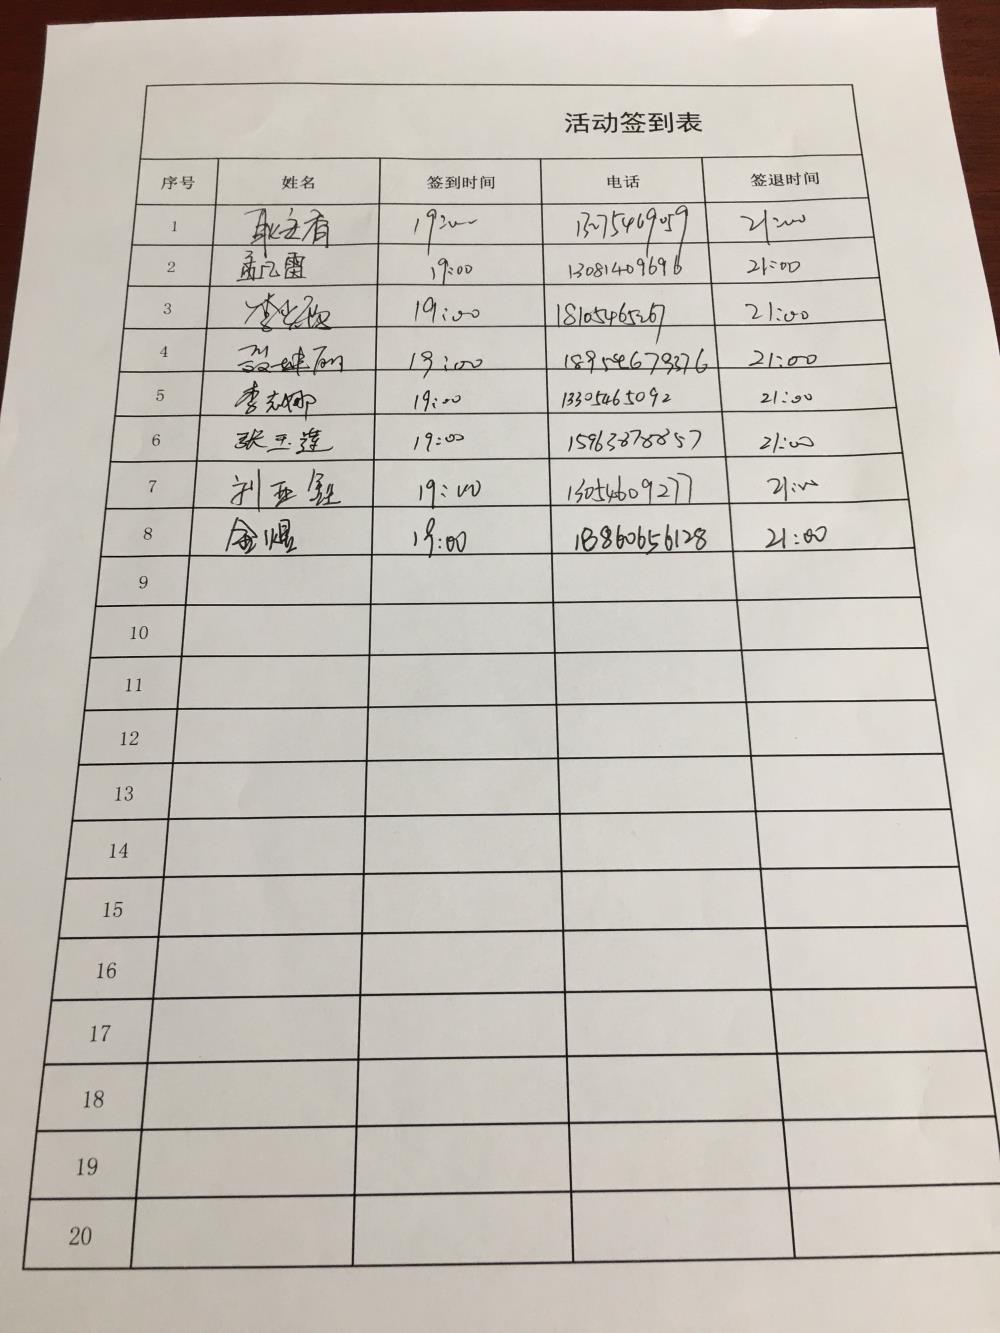 活动签到表
序号 姓名 签到时间 电话 签退时间
1 19:00 13075469059 21:00
2 孟凡雷 19:00 13081409696 21:00
3 19:00 18105465267 21:00
4 19:00 18954679376 21:00
5 李志娜 19:00 13305465092 21:00
6 张玉莲 19:00 15963878857 21:00
7 19:00 13054609277 21:00
8 金煜 19:00 18860656128 21:00
9
10
11
12
13
14
15
16
17
18
19
20